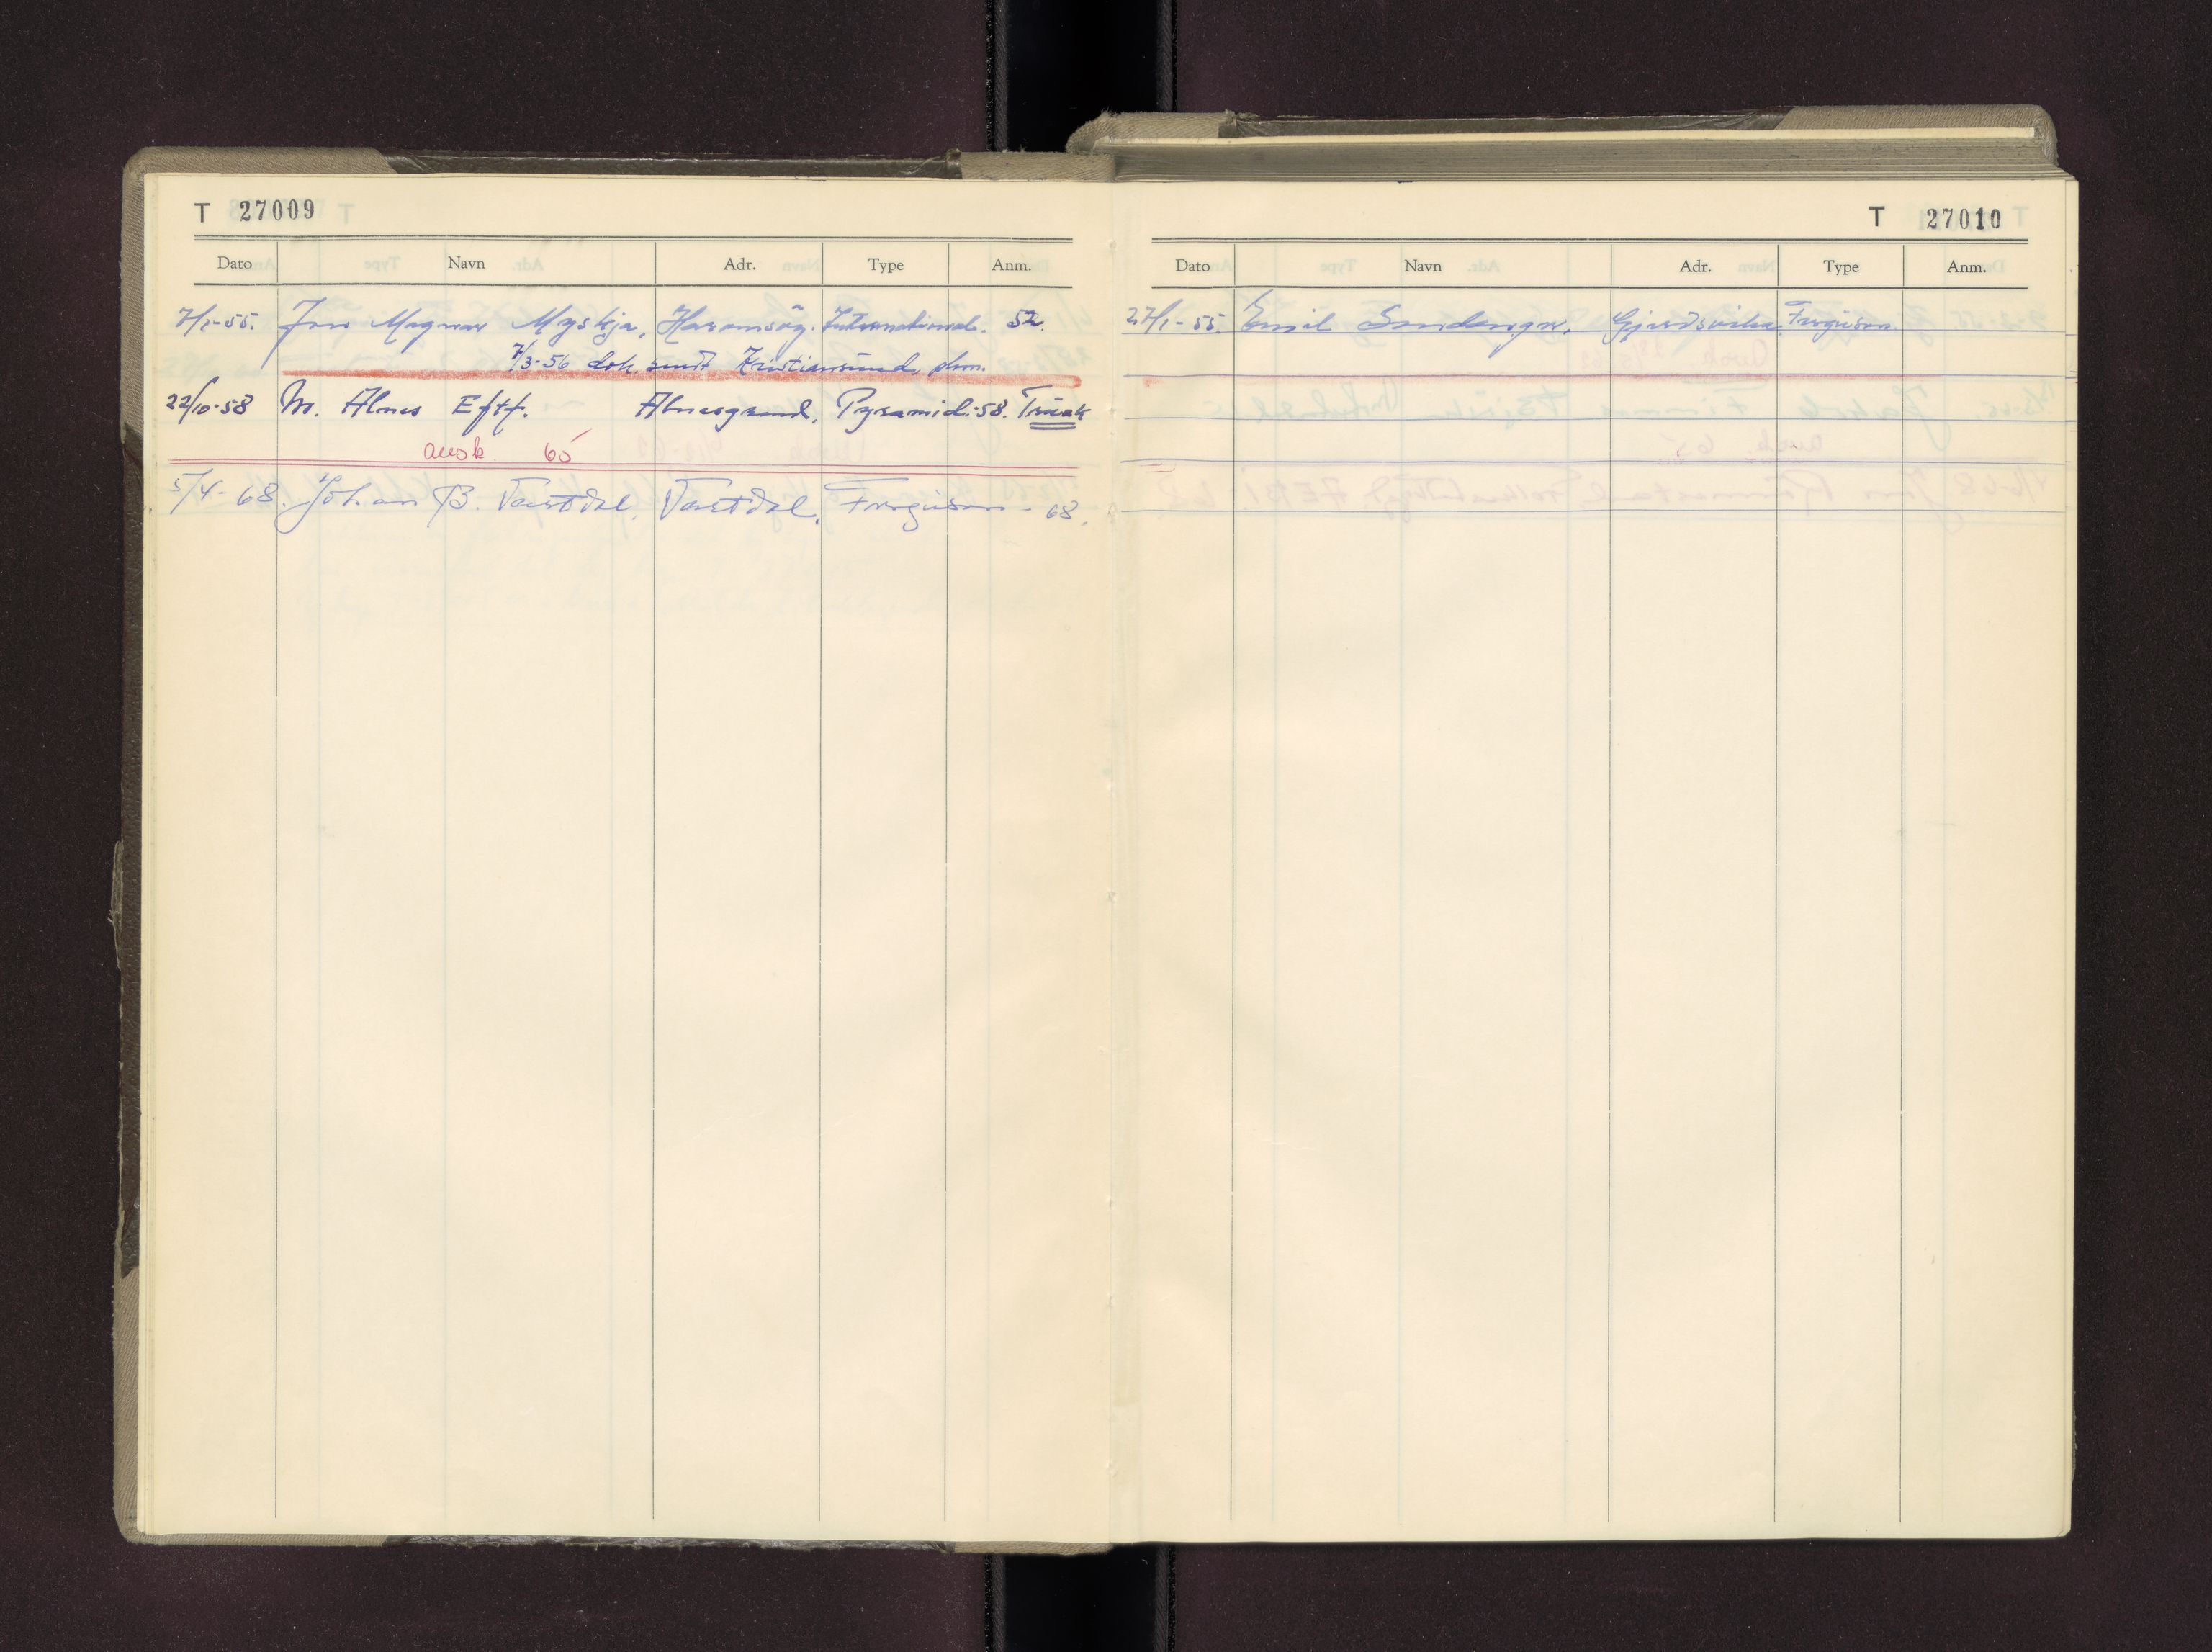 T 27009
Dato Navn Adr. Type Anm.
7/1-55. Jon Magnar Myskja, Haramsöy. International. 52.
7/3-56 dok. sendt Kristiansund
22/10-58 M. Alnes Eftf. Alnesgrend. Pyramid.-58. Truck
avsk. 65
5/4-68. Johan B. Tastdal. Tastdal. Ferguson - 68.
T 27010
Dato Navn Adr. Type Anm.
27/1-55. Emil Gjerdsvika Ferguson